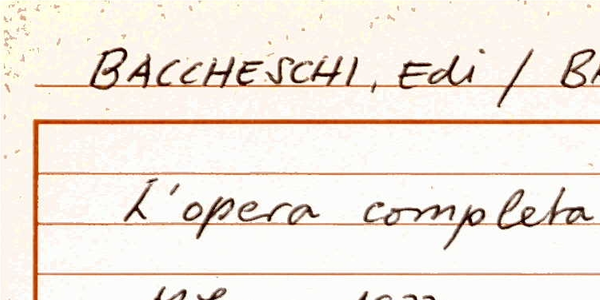 BACCHESCHI, Edi /
L'opera completa